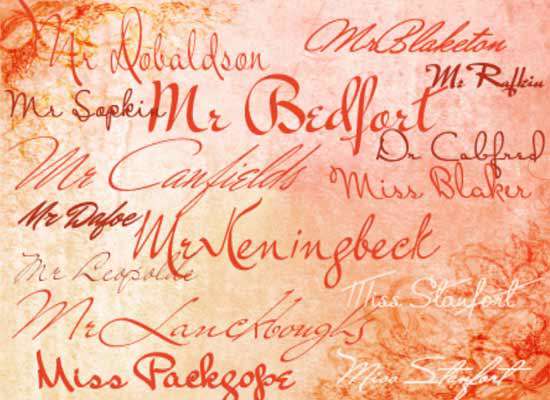 Mr Dobaldson
Mr Blaketon
Mr Rafkin
Mr Sopkin
Mr Bedfort
Dr Cobfred
Mr Canfields
Miss Blaker
Mr Dafoe
Mr Keningbeck
Mr Leopolde
Miss Stanfort
Mr Lanckboughs
Miss Packgope
Miss Stanfort